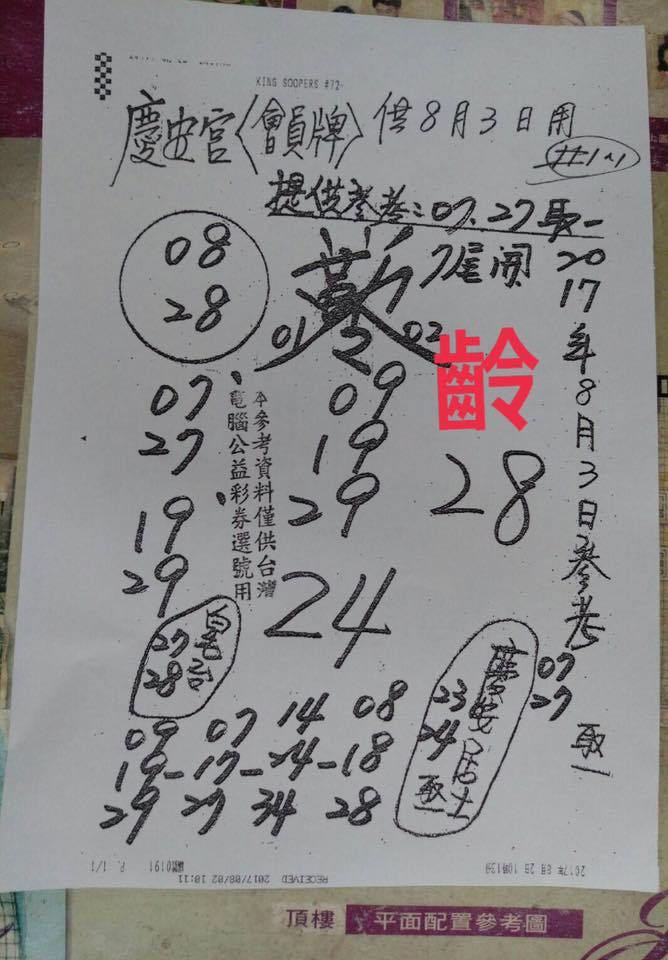 KING SOOPERS #72
慶安宮〈會員牌〉供8月3日用
#1~1
提供參考:07.27取一
08
28
7尾開
01
02
齡
2017年8月3日參考
07
27
取一
07
27
09
19
29
28
本參考資料僅供台灣
電腦公益彩券選號用
19
29
24
27
28
慶安居士
23
24
取一
09 07 14 08
19-17-24-18
29 27 34 28
0191 P. 1/1
RECEIVED 2017/08/02 10:11
2017年 8月 2日 10時12分
頂樓 平面配置參考圖